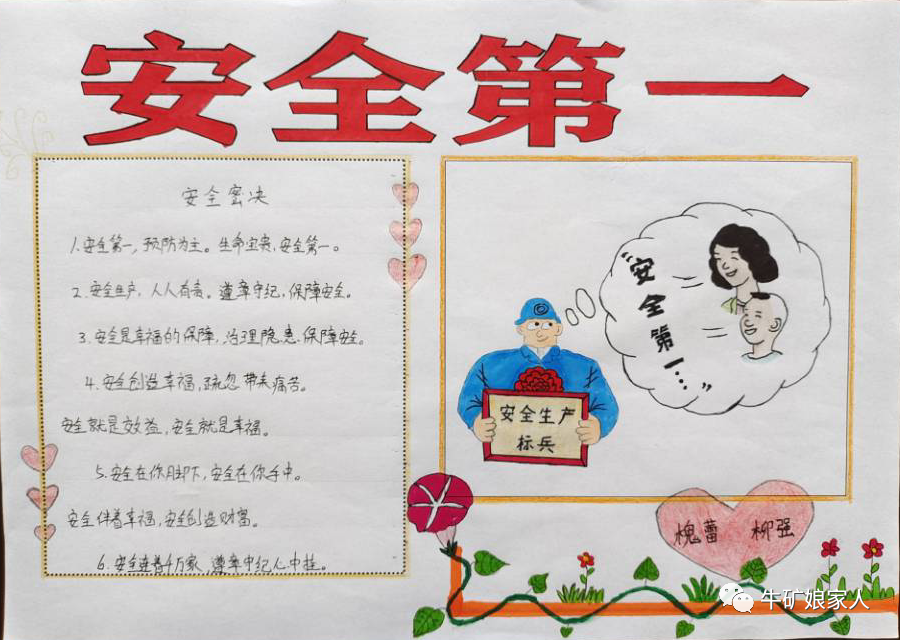 安全第一
安全密决
1.安全第一,预防为主。生命宝贵,安全第一。
2.安全生产,人人有责。遵章守纪,保障安全。
3.安全是幸福的保障,治理隐患,保障安全。
4.安全创造幸福,疏忽带来痛苦。
安全就是效益,安全就是幸福。
5.安全在你脚下,安全在你手中。
安全伴着幸福,安全创造财富。
6.安全连着千万家,遵章守纪心中挂。
“安全第一…”
安全生产
标兵
槐蕾 柳强
牛矿娘家人